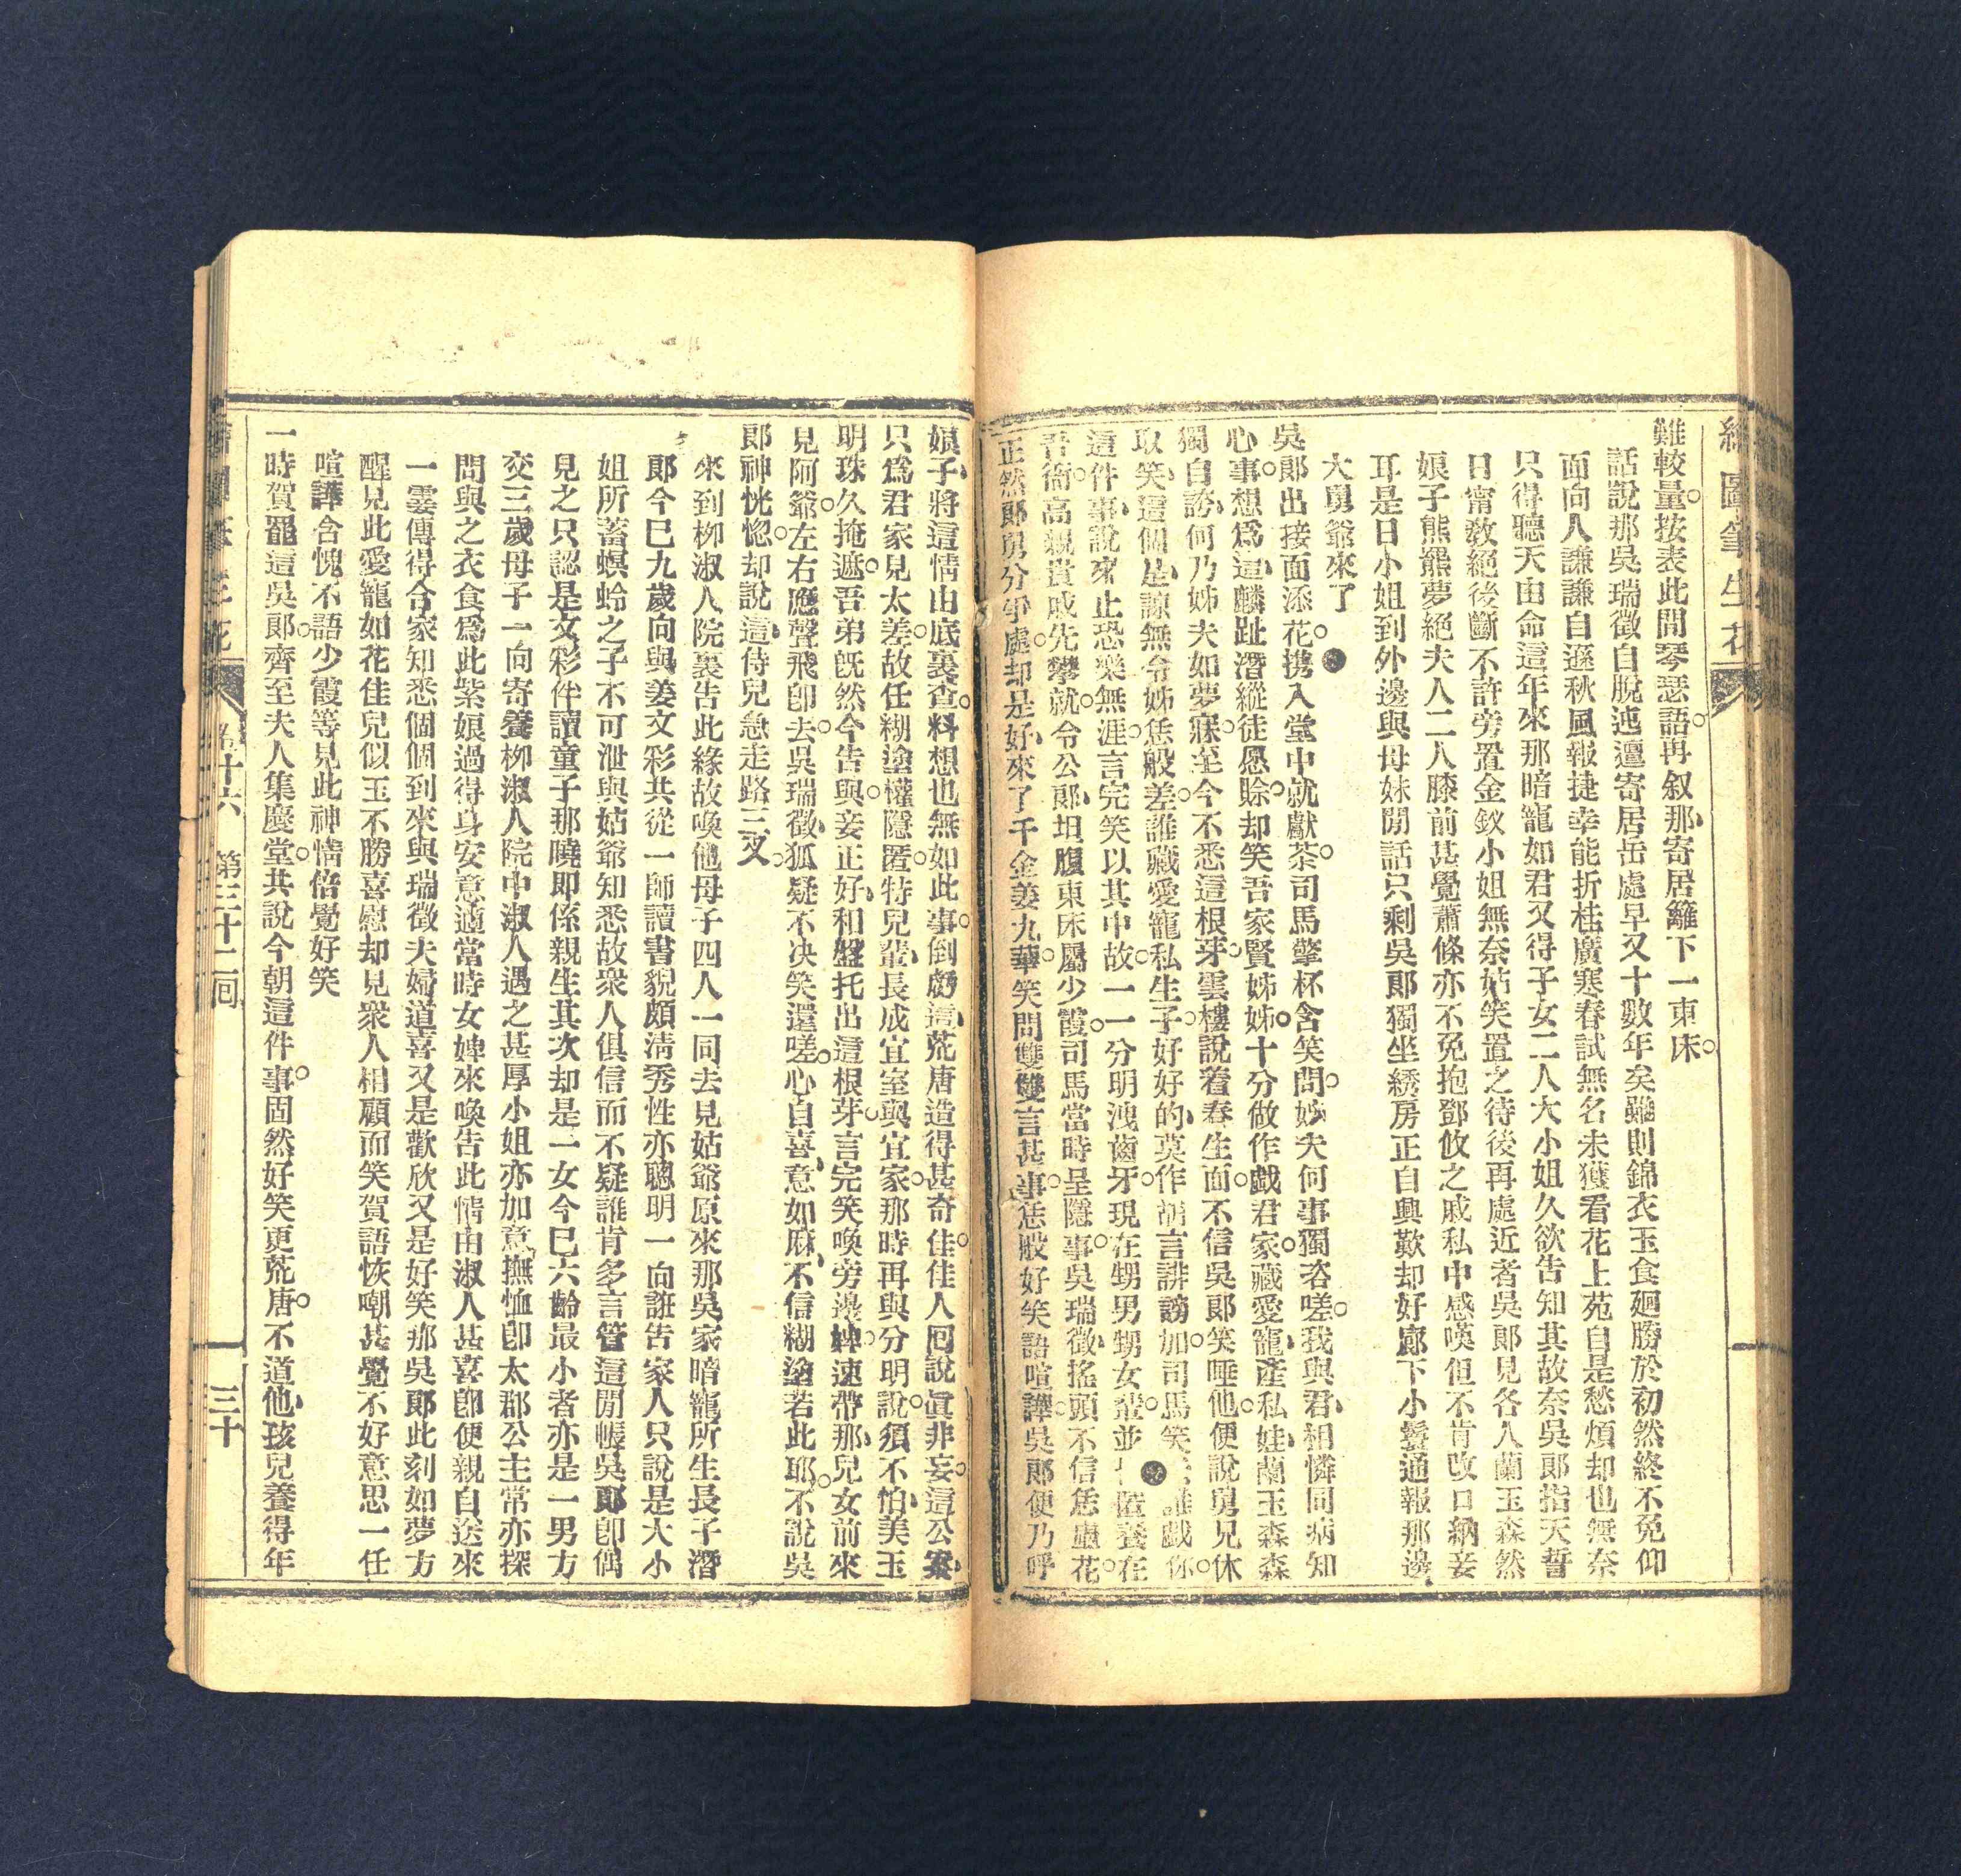 繪圖筆生花
難較量。按表此間琴瑟語。再叙那寄居籬下一東床。
話說那吳瑞徵自脫迍邅寄居岳處早又十數年矣雖則錦衣玉食廻勝於初然終不免仰
面向人謙謙自遜秋風報捷幸能折桂廣寒春試無名未獲看花上苑自是愁煩却也無奈
只得聽天由命這年來那暗寵如君又得子女二人大小姐久欲告知其故奈吳郞指天誓
日甯敎絕後斷不許旁置金釵小姐無奈姑笑置之待後再處近者吳郞見各人蘭玉森然
娘子熊羆夢絕夫人二人膝前甚覺蕭條亦不免抱鄧攸之戚私中感嘆但不肯改口納妾
耳是日小姐到外邊與母妹閒話只剩吳郞獨坐綉房正自興歎却好廊下小鬟通報那邊
大舅爺來了
吳郞出接面添花。携入堂中就獻茶。司馬擎杯含笑問。妙夫何事獨咨嗟。我與君相憐同病知
心事。想爲這麟趾潛縱徒愿賒。却笑吾家賢姊姊。十分做作戯君家。藏愛寵產私娃蘭玉森森
獨自誇。何乃姊夫如夢寐。至今不悉這根芽。雲樓說着春生面。不信吳郞笑唾他。便說舅兄休
取笑。這個是諒無令姊恁般差。誰藏愛寵私生子。好好的莫作謊言誹謗加。司馬笑 誰戯你。
這件事說來止恐樂無涯。言完笑以其中故。一一分明洩齒牙。現在甥男甥女輩。並 匿養在
吾衙。高親貴戚先攀就。令公郞坦腹東床屬少霞。司馬當時呈隱事。吳瑞徵搖頭不信恁虛花。
正然郞舅分爭處。却是好來了千金姜九華。笑問雙雙言甚事。恁般好笑語喧譁。吳郞便乃呼
娘子將這情由底裏查。料想也無如此事。倒虧這荒唐造得甚奇佳。佳人囘說眞非妄。這公案
只爲君家見太差。故任糊塗權隱匿。特兒輩長成宜室與宜家。那時再與分明說。須不怕美玉
明珠久掩遮。吾弟旣然今告與。妾正好和盤托出這根芽。言完笑喚旁邊婢。速帶那兒女前來
見阿爺。左右應聲飛卽去。吳瑞徵狐疑不決笑還嗟。心自喜意如麻。不信糊塗若此耶。不說吳
郞神恍惚。却說這侍兒急走路三叉。
來到柳淑人院裏告此緣故喚他母子四人一同去見姑爺原來那吳家暗寵所生長子潛
郞今巳九歲向與姜文彩共從一師讀書貌頗淸秀性亦聰明一向誑告家人只說是大小
姐所蓄螟蛉之子不可泄與姑爺知悉故衆人俱信而不疑誰肯多言管這閒帳吳郞卽偶
見之只認是文彩伴讀童子那曉卽係親生其次却是一女今巳六齡最小者亦是一男方
交三歲母子一向寄養柳淑人院中淑人遇之甚厚小姐亦加意撫恤卽太郡公主常亦探
問與之衣食爲此紫娘過得身安意適當時女婢來喚告此情由淑人甚喜卽便親自送來
一霎傳得合家知悉個個到來與瑞徵夫婦道喜又是歡欣又是好笑那吳郞此刻如夢方
醒見此愛寵如花佳兒似玉不勝喜慰却見衆人相顧而笑賀語恢嘲甚覺不好意思一任
喧譁含愧不語少霞等見此神情倍覺好笑
一時賀罷這吳郞。齊至夫人集慶堂。共說今朝這件事。固然好笑更荒唐。不道他孩兒養得年
卷十六　第三十二囘　三十